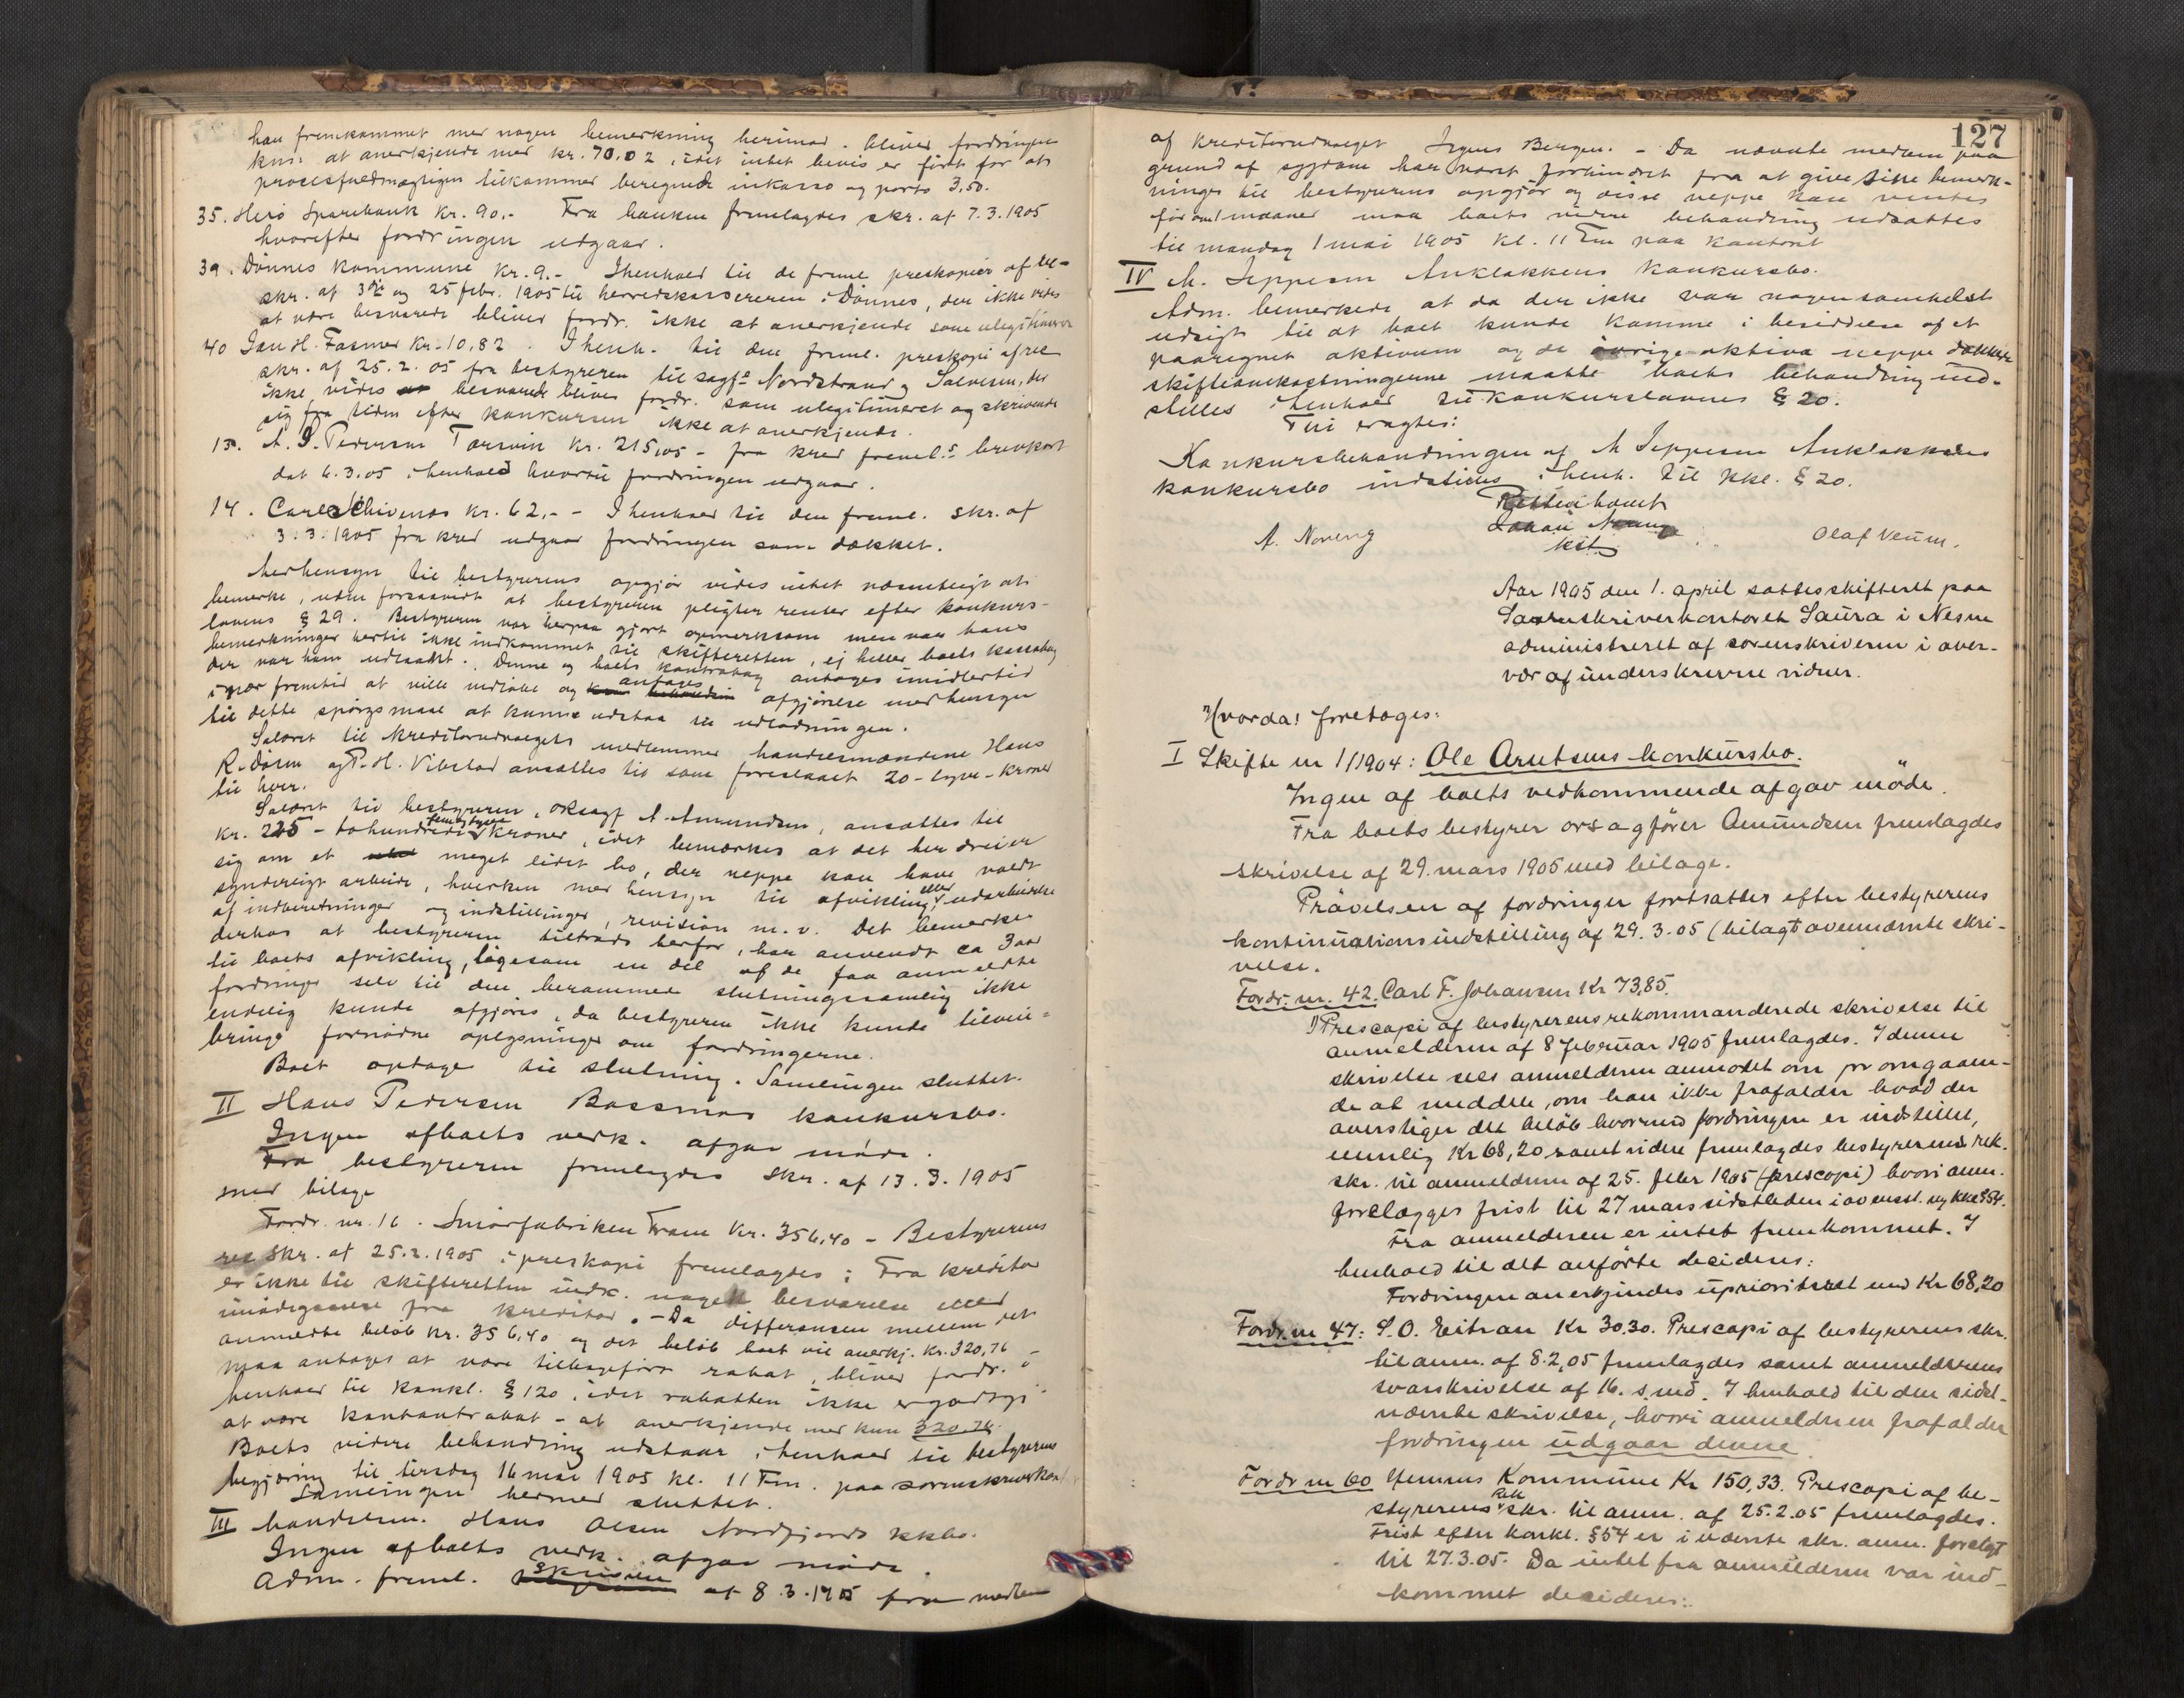 han fremkommet med nogen bemerkning herimod. bliver fordringen
kun at anerkjende med kr. 70,02, idet intet bevis er ført for at
procesfuldmægtigen tilkommer beregnede inkasso og porto 3,50.
35. Herø Sparebank kr. 90.- Fra banken fremlagdes skr. af 7.3.1905
hvorefter fordringen udgaar.
39. Dønnes kommune kr. 9.- Ihenhold til de freml. preskopier af
skr. af og 25 febr. 1905 til herredskassereren i Dønnes, der ikke vides
at være besvarede bliver fordr. ikke at anerkjende som ulegitimeret
40 Jan H. Fasmer Kr. 10,82. I henh. til den freml. preskopi af rec
skr. af 25.2.05 fra bestyreren til sagf. Nordstrand og Salvesen, der
ikke vides besvaret bliver fordr. som ulegitimeret og skrivende
sig fra tiden efter konkursen ikke at anerkjende.
13. A. P. Pedersen Torsvik kr. 215,05 - fra kred freml.s brevkort
dat 6.3.05 ihenhold hvortil fordringen udgaar.
14. Carl Schivenes kr. 62,- - Ihenhold til den freml. skr. af
3.3.1905 fra kred udgaar fordringen som dækket.
Medhensyn til bestyrerens opgjør vides intet væsentligt at
bemerke, uden forsaavidt at bestyreren pligter renter efter konkurs-
lovens § 29. Bestyreren var herpaa gjort opmerksom men var hans
bemerkninger hertil ikke indkommet til skifteretten, ej heller boets kassabog
der var ham udlaant. Denne og boets kontrabog antages imidlertid
i nær fremtid at ville indløbe og antages afgjørelse medhensyn
til dette spørgsmaal at kunne udstaa til udlodningen.
Salæret til kreditorudvalgets medlemmer handelsmændene Hans
R. Døsen og P. H. Vibstad ansættes til som foreslaaet 20 - tyve - kroner
til hver.
Salæret til bestyreren, oksagf A. Amundsen, ansættes til
kr. 225 - tohundrede femogtyve kroner, idet bemærkes at det her dreier
sig om et meget lidet bo, der neppe kan have voldt
synderligt arbeide, hverken med hensyn til afvikling eller udarbeidelse
af indberetninger og indstillinger, revision m.v. Det bemerkes
derhos at bestyreren tiltrods herfor, har anvendt ca 3 aar
til boets afvikling, ligesom en del af de faa anmeldte
fordringer selv til den berammede slutningssamling ikke
endelig kunde afgjøres, da bestyreren ikke kunde tilveie-
bringe fornødne oplysninger om fordringerne.
Boet optages til slutning. Samlingen sluttet.
II Hans Pedersen Bassmos konkursbo.
Ingen af boets vedk. afgav møde.
Fra bestyreren fremlagdes skr. af 13.3.1905
med bilage
Fordr. nr. 16. Smørfabriken Fram kr. 356,40 - Bestyrerens
rec skr. af 25.2.1905 i preskopi fremlagdes; Fra kreditor
er ikke til skifteretten indk. nogen besvarelse eller
imødegaaelse fra kreditor. - Da differansen mellem det
anmeldte beløb kr. 356,40 og det beløb boet vil anerkj. kr. 320,76
maa antages at være tilbageført rabat, bliver fordr. i
henhold til konkl. § 120, idet rabatten ikke er godtgj.
at være kontantrabat - at anerkjende med kun 320,76.
Boets videre behandling udstaar ihenhold til bestyrerens
begjæring til tirsdag 16 mai 1905 kl. 11 Fm. paa sorenskriverkont
Samlingen hermed sluttet.
III handelsm. Hans Olsen Nordfjords kkbo.
Ingen af boets vedk. afgav møde.
Adm. freml. Skrivelse af 8.3.1905 fra medlem
127
af kreditorudvalget Jrgens Bergen. - Da nævnte medlem paa
grund af sygdom har været forhindret fra at give sine bemerk-
ninger til bestyrerens opgjør og disse neppe kan ventes
før om 1 maaned maa boets videre behandling udsættes
til mandag 1 mai 1905 kl. 11 Fm paa kontoret
IV M. Jeppesen Anklakkens konkursbo.
Adm. bemerkede at da der ikke var nogensomhelst
udsigt til at boet kunde komme i besiddelse af et
paaregnet aktivum og de øvrige aktiva neppe dækker
skifteomkostningerne maatte boets behandling ind-
stilles ihenhold til konkurslovens § 20.
Thi eragtes:
Konkursbehandlingen af M Jeppesen Anklakkens
konkursbo indstilles i henh. til kkl. § 20.
Retten hævet
Johan
kst
A. Noreng
Olaf Veum.
Aar 1905 den 1. april sattes skifteret paa
Sorenskriverkontoret Saura i Nesne
administreret af sorenskriveren i over-
vær af underskrevne vidner.
Hvorda! foretoges:
I Skifte nr 1/1904: Ole Arntsens konkursbo.
Ingen af boets vedkommende afgav møde.
Fra boets bestyrer ovrsagfører Amundsen fremlagdes
skrivelse af 29. mars 1905 med bilage.
Prøvelsen af fordringer fortsattes efter bestyrerens
kontinuationsindstilling af 29.3.05 (bilagt ovennævnte skri-
velse.
Fordr. nr. 42. Carl F. Johansen Kr 73,85.
Prescopi af bestyrerens rekommanderede skrivelse til
anmelderen af 8 februar 1905 fremlagdes. I denne
skrivelse sees anmelderen anmodet om pr omgaaen-
de at meddele, om han ikke frafalder hvad der
overstiger det beløb hvormed fordringen er indstillet,
nemlig Kr 68,20 samt videre fremlagdes bestyrerens rek.
skr. til anmelderen af 25. febr 1905 (prescopi) hvori anm.
forelægges frist til 27 mars sidstleden i ovensst. og kkl § 54.
Fra anmelderen er intet fremkommet. I
henhold til det anførte decideres:
Fordringen anerkjendes uprioriteret med Kr 68,20
Fordr. nr 47: S. O. Eitran Kr 30,30. Prescopi af bestyrerens skr.
til anm. af 8.2,05 fremlagdes samt anmelderens
svarskrivelse af 16. s. md. I henhold til den sidst-
nævnte skrivelse, hvori anmelderen frafalder
fordringen udgaar denne
Fordr nr 60 Hemnes Kommune Kr 150,33. Prescopi af be-
styrerens rek skr. til anm. af 25.2.05 fremlagdes.
Frist efter konkl. § 54 er i nævnte skr. anm. forelagt
til 27.3.05. Da intet fra anmelderen var ind-
kommet decideres: